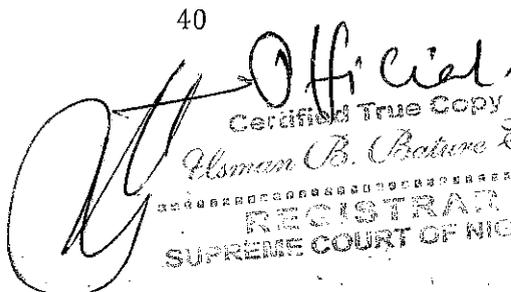 40
Official
Certified True Copy
Usman B. Bature
REGISTRAR
SUPREME COURT OF NIG